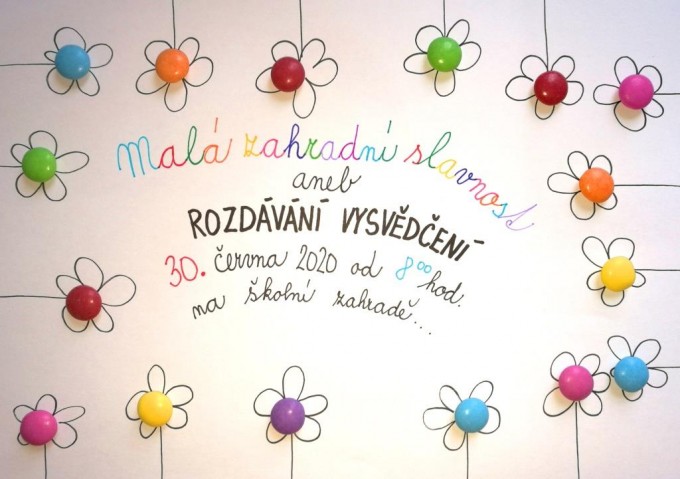 Malá zahradní slavnost
aneb
ROZDÁVÁNÍ VYSVĚDČENÍ
30. června 2020 od 8⁰⁰ hod.
na školní zahradě...